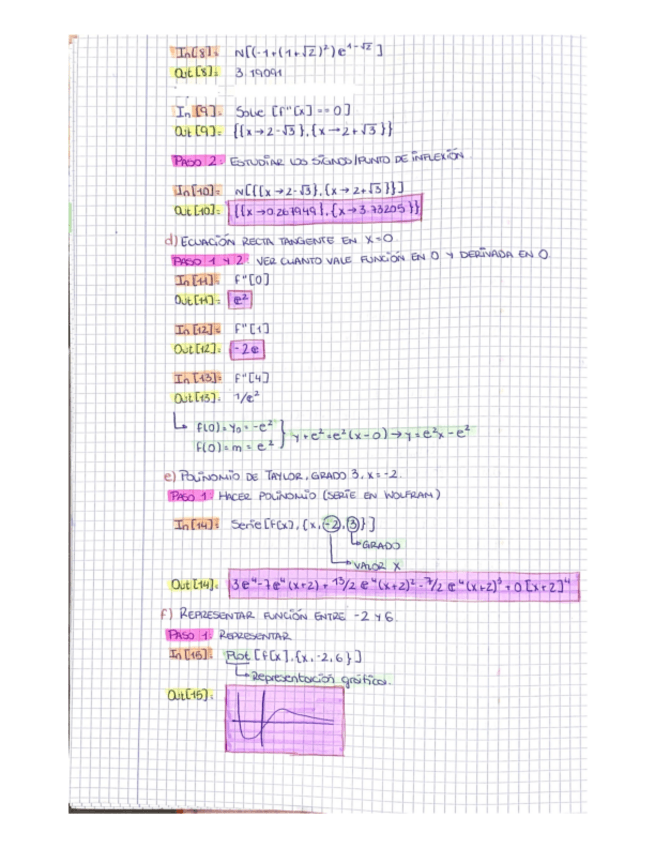 In[8]: N[(-1+(1+√2)²)e^1-√2]
Out[8]: 3.19091
In[9]: Solve [f''[x] == 0]
Out[9]: {{x→2-√3},{x→2+√3}}
PASO 2: ESTUDIAR LOS SIGNOS/PUNTO DE INFLEXIÓN
In[10]= N[{{x→2-√3},{x→2+√3}}]
Out[10]: {{x→0.267949},{x→3.73205}}
d) ECUACIÓN RECTA TANGENTE EN X=0
PASO 1 Y 2: VER CUANTO VALE FUNCIÓN EN 0 Y DERIVADA EN 0
In[11]= f''[0]
Out[11]= e²
In[12]= f''[1]
Out[12]: -2e
In[13]= f''[4]
Out[13]: 1/e²
f(0)=y₀=-e²
f(0)=m=e² } y+e²=e²(x-0)→y=e²x-e²
e) POLINOMIO DE TAYLOR, GRADO 3, x=-2.
PASO 1: HACER POLINOMIO (SERIE EN WOLFRAM)
In[14]: Serie[f(x), {x,-2,3}]
GRADO
VALOR X
Out[14]: 3e⁴-7e⁴(x+2)+13/2 e⁴(x+2)²-7/2 e⁴(x+2)³+0[x+2]⁴
f) REPRESENTAR FUNCIÓN ENTRE -2 Y 6.
PASO 1: REPRESENTAR
In[15]: Plot [f[x],{x,-2,6}]
Representación gráfica.
Out[15]: